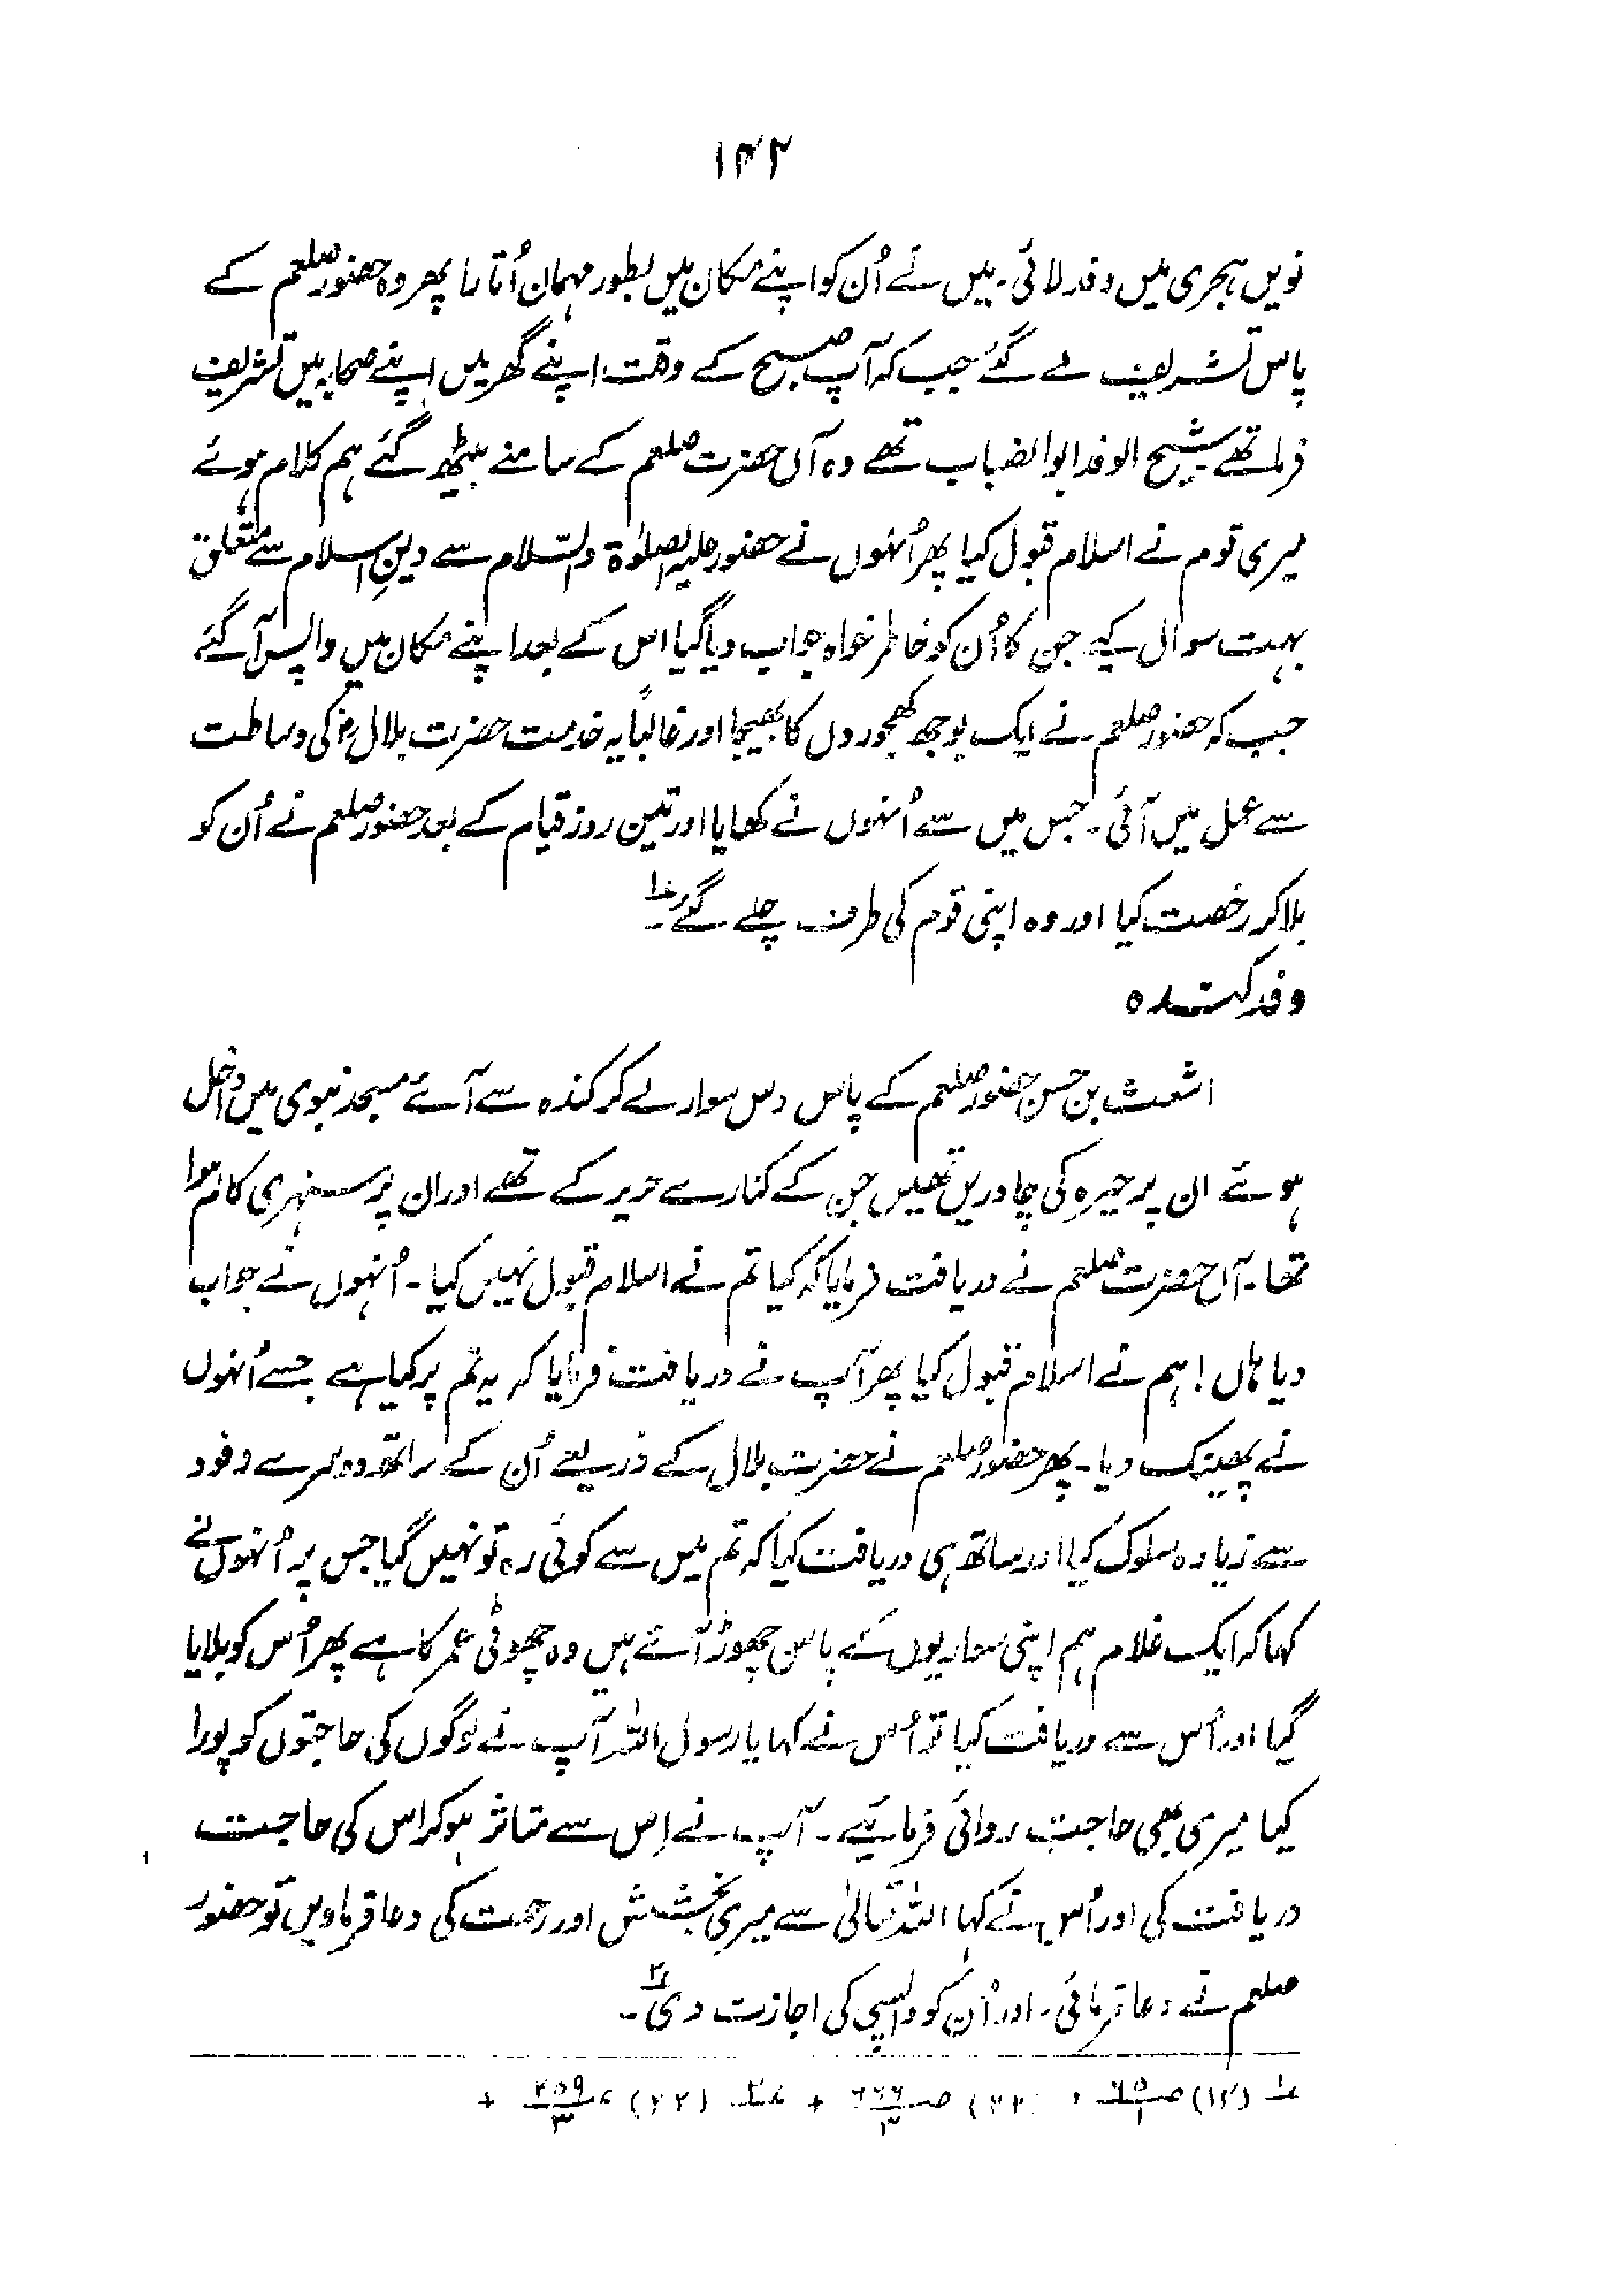 ۱۴۲
نویں ہجری میں وفد لائی۔ میں نے اُن کو اپنے مکان میں بطور مہمان اُتارا پھر وہ حضور صلعم کے
پاس تشریف لے گئے جب کہ آپ صبح کے وقت اپنے گھر میں اپنے صحابہ میں تشریف
فرما تھے۔ شیخ الوفد ابوالضباب تھے وہ آں حضرت صلعم کے سامنے بیٹھ گئے ہم کلام ہوئے
میری قوم نے اسلام قبول کیا پھر اُنہوں نے حضور علیہ الصلوٰۃ والسّلام سے دینِ اسلام سے متعلق
بہت سوال کیے جن کا اُن کو خاطر خواہ جواب دیا گیا اس کے بعد اپنے مکان میں واپس آ گئے
جب کہ حضور صلعم نے ایک بوجھ کھجوروں کا بھیجا اور غالباً یہ خدمت حضرت بلالؓ کی وساطت
سے عمل میں آئی۔ جس میں سے اُنہوں نے کھایا اور تین روز قیام کے بعد حضور صلعم نے اُن کو
بلا کر رخصت کیا اور وہ اپنی قوم کی طرف چلے گئے۔ ؂۱
وفد کندہ
اشعث بن حسن حضور صلعم کے پاس دس سوار لے کر کندہ سے آئے مسجد نبوی میں داخل
ہوئے ان پر حیرہ کی چادریں تھیں جن کے کنارے حریر کے تھے اور ان پر سنہری کام ہوا
تھا۔ آں حضرت صلعم نے دریافت فرمایا کہ کیا تم نے اسلام قبول نہیں کیا۔ اُنہوں نے جواب
دیا ہاں! ہم نے اسلام قبول کیا پھر آپ نے دریافت فرمایا کہ یہ تم پر کیا ہے جسے اُنہوں
نے پھینک دیا۔ پھر حضور صلعم نے حضرت بلال کے ذریعے اُن کے ساتھ دوسرے وفود
سے زیادہ سلوک کیا اور ساتھ ہی دریافت کیا کہ تم میں سے کوئی رہ تو نہیں گیا جس پر اُنہوں نے
کہا کہ ایک غلام ہم اپنی سواریوں کے پاس چھوڑ آئے ہیں وہ چھوٹی عمر کا ہے پھر اُس کو بلایا
گیا اور اُس سے دریافت کیا تو اُس نے کہا یا رسول اللہ آپ نے لوگوں کی حاجتوں کو پورا
کیا میری بھی حاجت روائی فرمایئے۔ آپ نے اِس سے متاثر ہو کر اس کی حاجت
دریافت کی اور اُس نے کہا اللہ تعالیٰ سے میری بخشش اور رحمت کی دعا فرماویں تو حضور
صلعم نے دعا فرمائی۔ اور اُن کو واپسی کی اجازت دی ؂۲۔
؂۱ (۱۲) ص ۶۵/۱ ، (۲۲) ص /۳ + ؂۲ (۲۲) ص ۲۵۹/۳ +